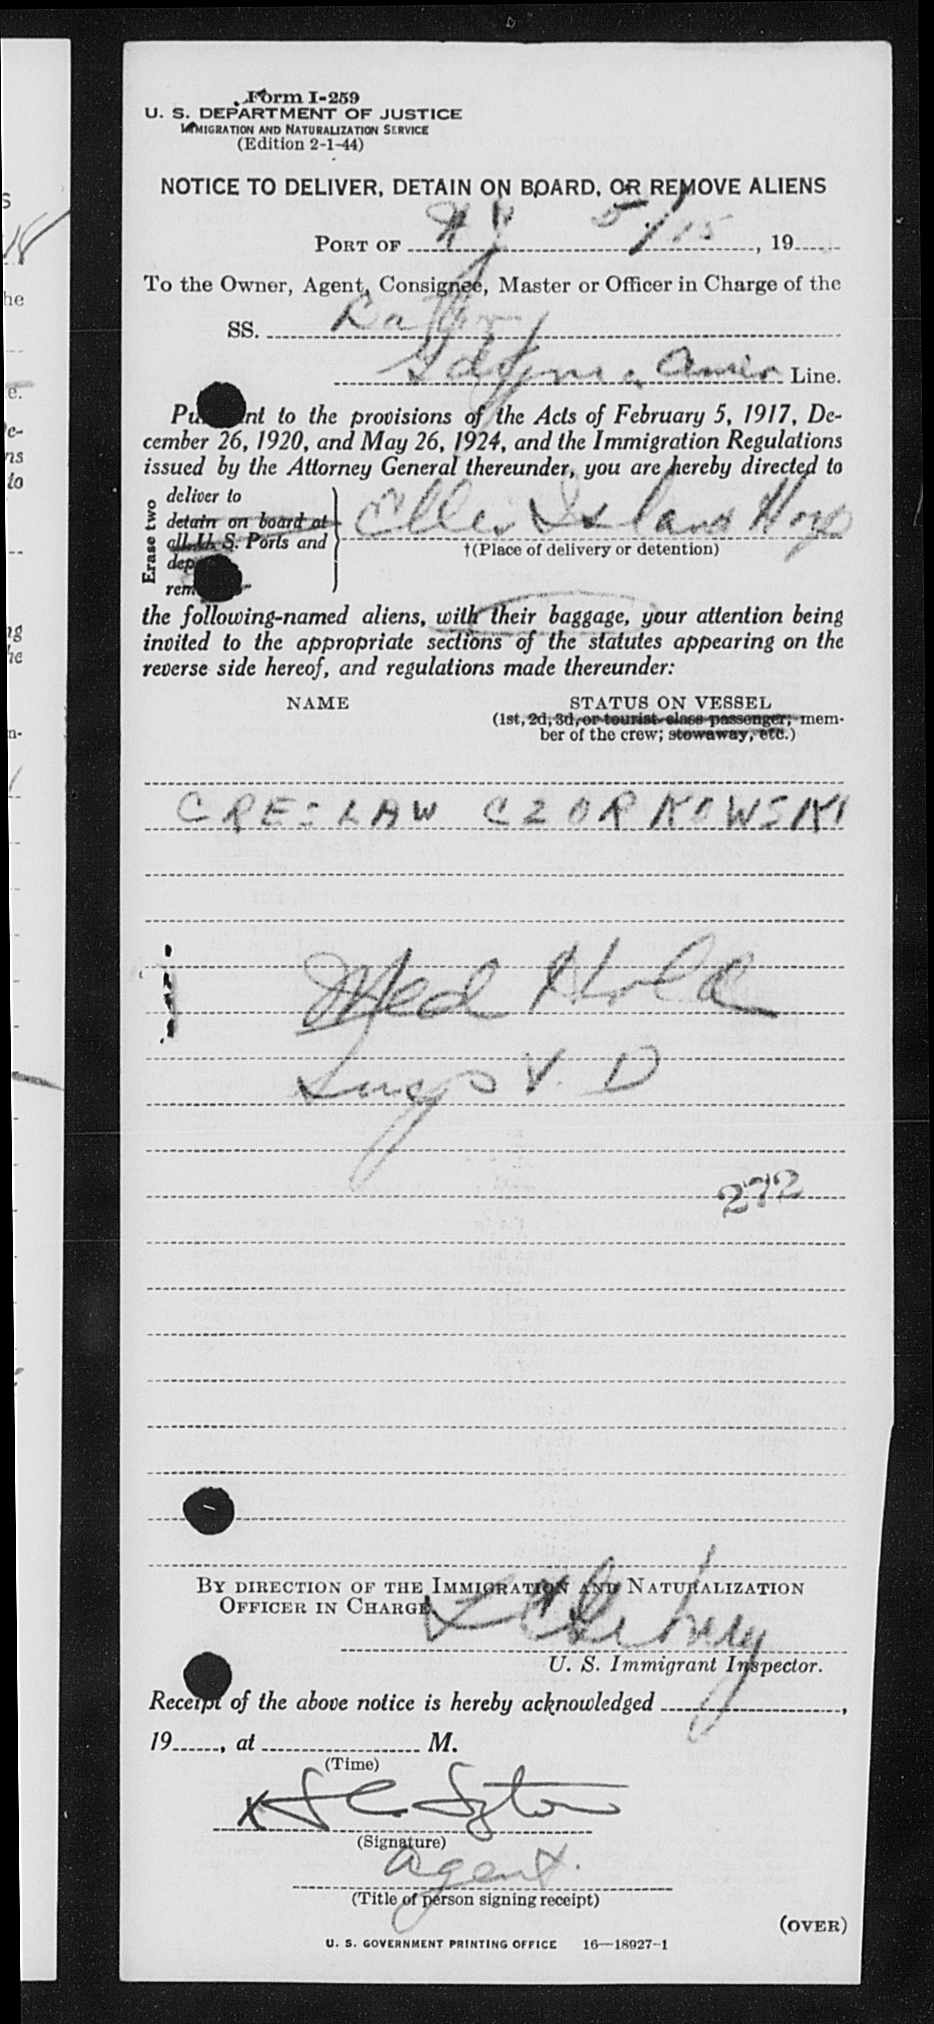 Form I-259
U. S. DEPARTMENT OF JUSTICE
IMMIGRATION AND NATURALIZATION SERVICE
(Edition 2-1-44)
NOTICE TO DELIVER, DETAIN ON BOARD, OR REMOVE ALIENS
PORT OF N Y 5/15, 19
To the Owner, Agent, Consignee, Master or Officer in Charge of the
SS. Batory
Gdynia Amer Line.
Pu nt to the provisions of the Acts of February 5, 1917, De-
cember 26, 1920, and May 26, 1924, and the Immigration Regulations
issued by the Attorney General thereunder, you are hereby directed to
Erase two
deliver to
detain on board at
all U. S. Ports and
dep
rem
Ellis Island Hosp
†(Place of delivery or detention)
the following-named aliens, with their baggage, your attention being
invited to the appropriate sections of the statutes appearing on the
reverse side hereof, and regulations made thereunder:
NAME STATUS ON VESSEL
(1st, 2d, 3d, or tourist-class passenger; mem-
ber of the crew; stowaway, etc.)
CRESLAW CZORKOWSKI
Med Hold
Susp V. D
272
BY DIRECTION OF THE IMMIGRATION AND NATURALIZATION
OFFICER IN CHARGE
U. S. Immigrant Inspector.
Receipt of the above notice is hereby acknowledged ,
19 , at M.
(Time)
X
(Signature)
Agent.
(Title of person signing receipt)
(OVER)
U. S. GOVERNMENT PRINTING OFFICE 16—18927-1